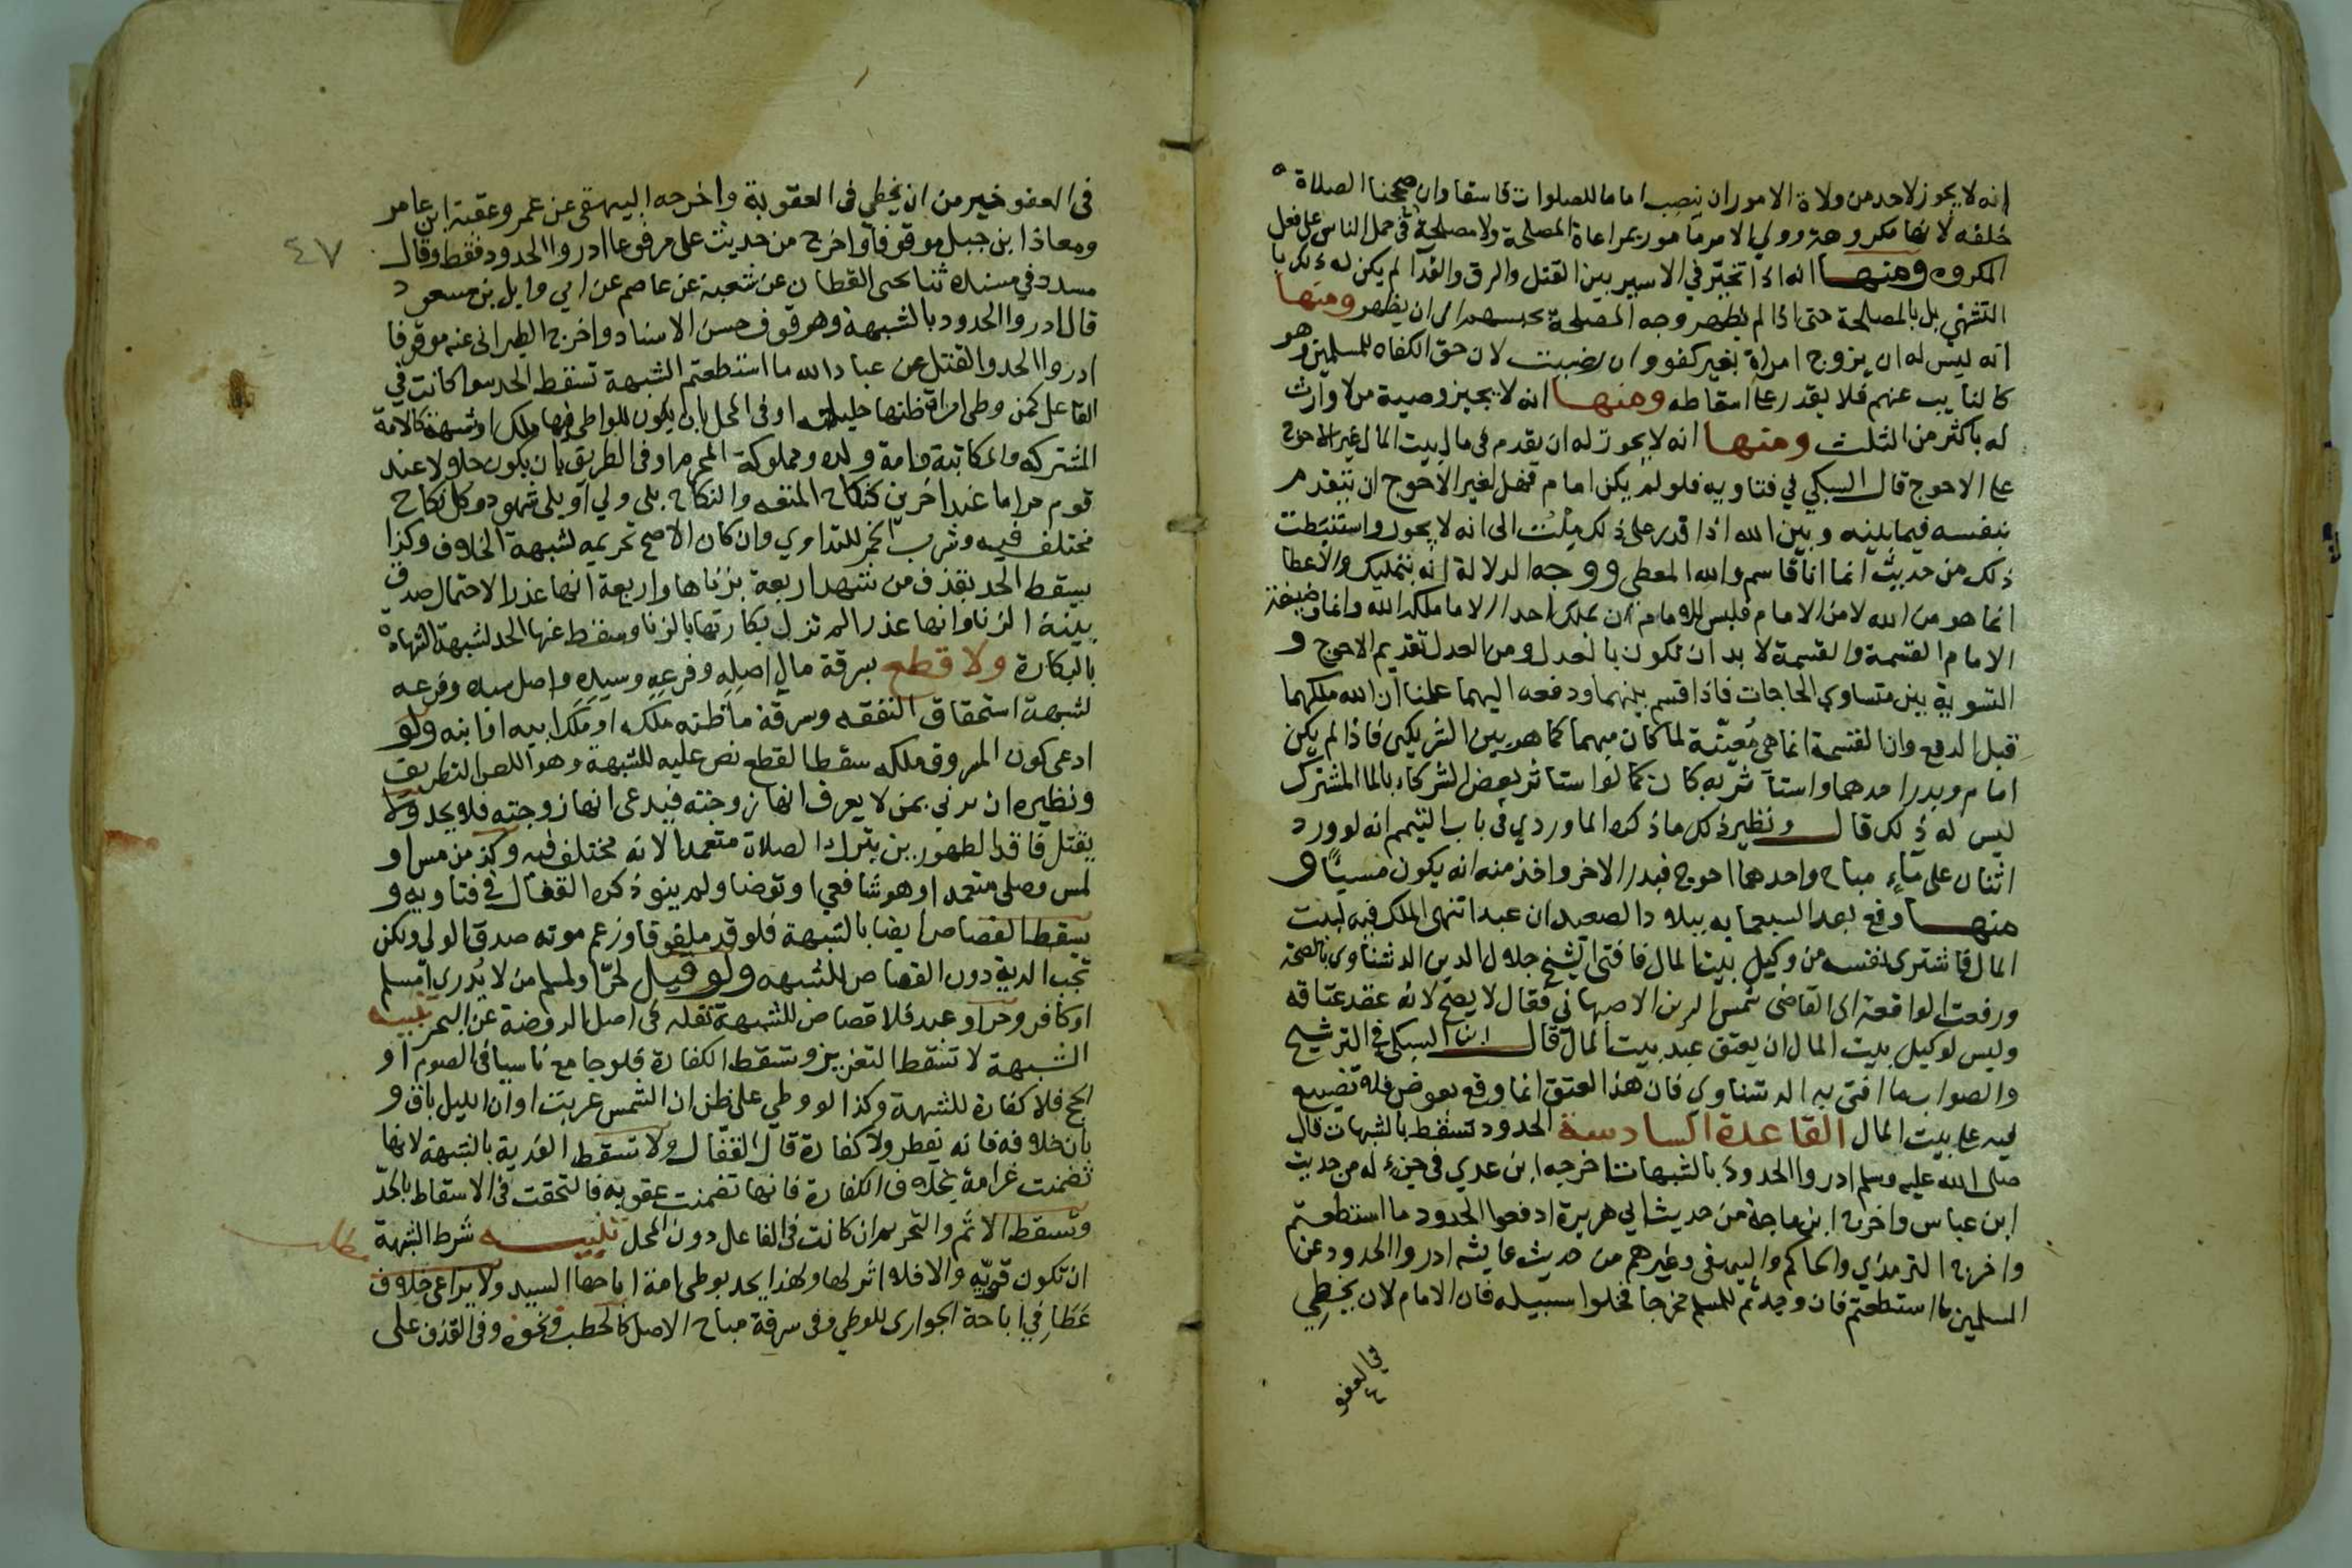 انه لا يجوز لاحد من ولاة الامور ان ينصب اماما للصلوات فاسقا وان صححنا الصلاة
خلفه لانها مكروهة وولي الامر مامور بمراعاة المصلحة ولا مصلحة في حمل الناس على فعل
المكروه ومنها انه اذا تخير في الاسير بين القتل والرق والفدا لم يكن له ذلك با
التشهي بل بالمصلحة حتى اذا لم يظهر وجه المصلحة يحبسهم الى ان يظهر ومنها
انه ليس له ان يزوج امراة بغير كفو وان رضيت لان حق الكفاه للمسلمين وهو
كالنايب عنهم فلا يقدر على اسقاطه ومنها انه لا يجيز وصية من لا وارث
له باكثر من الثلث ومنها انه لا يجوز له ان يقدم في مال بيت المال غير الاحوج
على الاحوج قال السبكي في فتاويه فلو لم يكن امام فهل لغير الاحوج ان يتقدم
بنفسه فيما بينه وبين الله اذا قدر على ذلك ملت الى انه لا يجوز واستنبطت
ذلك من حديث انما انا قاسم والله المعطي ووجه الدلالة انه التمليك والاعطا
انما هو من الله لا من الامام فليس للامام ان يملك احدا الا ما ملكه الله وانما وظيفة
الامام القسمة والقسمة لا بد ان تكون بالعدل ومن العدل تقديم الاحوج و
التسوية بين متساوي الحاجات فاذا قسم بينهما ودفعه اليهما علمنا ان الله ملكهما
قبل الدفع وان القسمة انما هي معينة لما كان مبهما كما هو بين الشريكين فاذا لم يكن
امام وبدر احدهما واستاثر به كان كما لو استاثر بعض الشركاء بالما المشترك
ليس له ذلك قال ونظير ذلك ما ذكره الماوردي في باب التيمم انه لو ورد
اثنان على ماء مباح واحدهما احوج فبدر الاخر واخذ منه انه يكون مسيئا و
منها وقع بعد السبعمايه ببلاد الصعيد ان عبدا انتهى الملك فيه لبيت
المال فاشترى نفسه من وكيل بيت المال فافتى الشيخ جلال الدين الدشناوي بالصحة
ورفعت الواقعة الى القاضي شمس الدين الاصبهاني فقال لا يصح لانه عقد عتاقه
وليس لوكيل بيت المال ان يعتق عبد بيت المال قال ابن السبكي في الترشيح
والصواب ما افتى به الدشناوي فان هذا العتق انما وقع بعوض فلا تضييع
فيه على بيت المال القاعدة السادسة الحدود تسقط بالشبهات قال
صلى الله عليه وسلم ادروا الحدود بالشبهات اخرجه ابن عدي في جزء له من حديث
ابن عباس واخرج ابن ماجة من حديث ابي هريرة ادفعوا الحدود ما استطعتم
واخرج الترمذي والحاكم والبيهقي وغيرهم من حديث عايشه ادروا الحدود عن
المسلمين ما استطعتم فان وجدتم للمسلم مخرجا فخلوا سبيله فان الامام لان يخطي
في العفو
٤٧
في العفو خير من ان يخطي في العقوبة واخرجه البيهقي عن عمر وعقبة ابن عامر
ومعاذ ابن جبل موقوفا واخرج من حديث على مرفوعا ادروا الحدود فقط وقال
مسدد في مسنده ثنا يحى القطان عن شعبة عن عاصم عن ابي وايل بن مسعود
قال ادروا الحدود بالشبهة وهو موقوف حسن الاسناد واخرج الطبراني عنه موقوفا
ادروا الحد والقتل عن عباد الله ما استطعتم الشبهة تسقط الحد سوا كانت في
الفاعل كمن وطى امراة ظنها حليلته او في المحل بان يكون للواطي فيها ملك او شبهة كالامة
المشتركه والمكاتبة وامة ولده ومملوكة المحرم او في الطريق بان يكون حلالا عند
قوم حراما عند اخرين كنكاح المتعه والنكاح بلى ولي او بلى شهود وكل نكاح
مختلف فيه وشرب الخمر للتداوي وان كان الاصح تحريمه لشبهة الخلاف وكذا
يسقط الحد بقذف من شهد اربعة بزناها واربعة انها عذرا لاحتمال صدق
بينة الزنا وانها عذرا لم تزل بكارتها بالزنا وسقط عنها الحد لشبهة الشهادة
بالبكارة ولا قطع بسرقة مال اصله وفرعه وسيده واصل سيده وفرعه
لشبهة استحقاق النفقه وسرقة ما ظنه ملكه او ملك ابيه او ابنه ولو
ادعى كون المسروق ملكه سقط القطع نص عليه للشبهة وهو اللص الظريف
ونظيره ان يزني بمن لا يعرف انها زوجته فيدعى انها زوجته فلا يحد ولا
يقتل فاقد الطهورين بترك الصلاة متعمدا لانه مختلف فيه وكذا من مس او
لمس وصلى متعمدا وهو شافعي او توضا ولم ينو ذكره القفال في فتاويه و
يسقط القصاص ايضا بالشبهة فلو قد ملفوفا وزعم موته صدق الولى ولكن
تجب الدية دون القصاص للشبهه ولو قتل الحر المسلم من لا يدري امسلم
او كافر وحر او عبد فلا قصاص للشبهة نقله في اصل الروضة عن البحر تنبيه
الشبهة لا تسقط التعزيز وتسقط الكفارة فلو جامع ناسيا في الصوم او
الحج فلا كفارة للشبهة وكذا لو وطي على ظن ان الشمس غربت او ان الليل باق و
بان خلافه فانه يفطر ولا كفارة قال القفال ولا تسقط الفدية بالشبهة لانها
تضمنت غرامة بخلاف الكفارة فانها تضمنت عقوبه فالتحقت في الاسقاط بالحد
وتسقط الاثم والتحريم ان كانت في الفاعل دون المحل تنبيه شرط الشبهة
مطلب
ان تكون قويه والا فلا اثر لها ولهذا يحد بوطى امة اباحها السيد ولا يراعى خلاف
عطا في اباحة الجوارى للوطي وفي سرقة مباح الاصل كالحطب ونحوه وفي القذف على